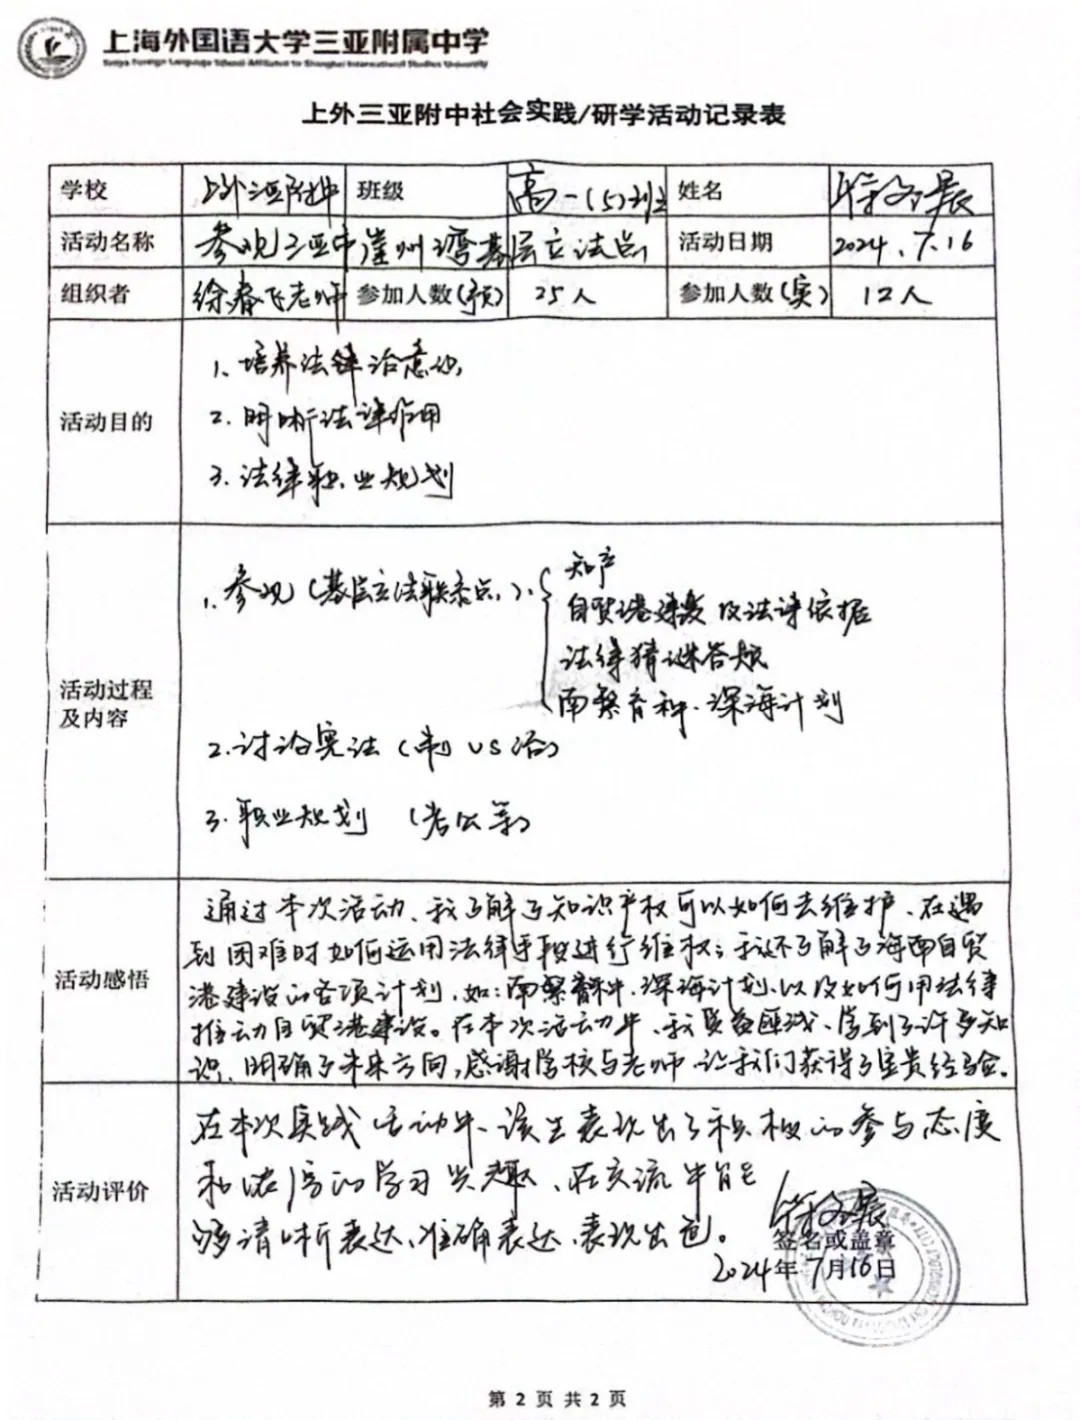 上海外国语大学三亚附属中学
Sanya Foreign Language School Affiliated to Shanghai International Studies University
上外三亚附中社会实践/研学活动记录表
学校 上外三亚附中 班级 高一(5)班 姓名 符文展
活动名称 参观三亚中崖州湾基层立法点 活动日期 2024.7.16
组织者 徐春飞老师 参加人数(预) 25人 参加人数(实) 12人
活动目的
1、培养法律治意识
2.明晰法律作用
3.法律职业规划
活动过程及内容
1.参观(基层立法联系点):
知产
自贸港建设及法律依据
法律猜谜答题
南繁育种、深海计划
2.讨论宪法(制 VS 治)
3.职业规划 (考公等)
活动感悟
通过本次活动、我了解了知识产权可以如何去维护、在遇
到困难时如何运用法律手段进行维权；我还了解了海南自贸
港建设的各项计划,如:南繁育种、深海计划、以及如何用法律
推动自贸港建设。在本次活动中、我受益匪浅、学到了许多知
识、明确了未来方向,感谢学校与老师、让我们获得了宝贵经验。
活动评价
在本次实践活动中、该生表现出了积极的参与态度
和浓厚的学习兴趣、在交流中能
够清晰表达、准确表达、表现出色。
符文展
签名或盖章
2024年7月16日
第 2 页 共 2 页